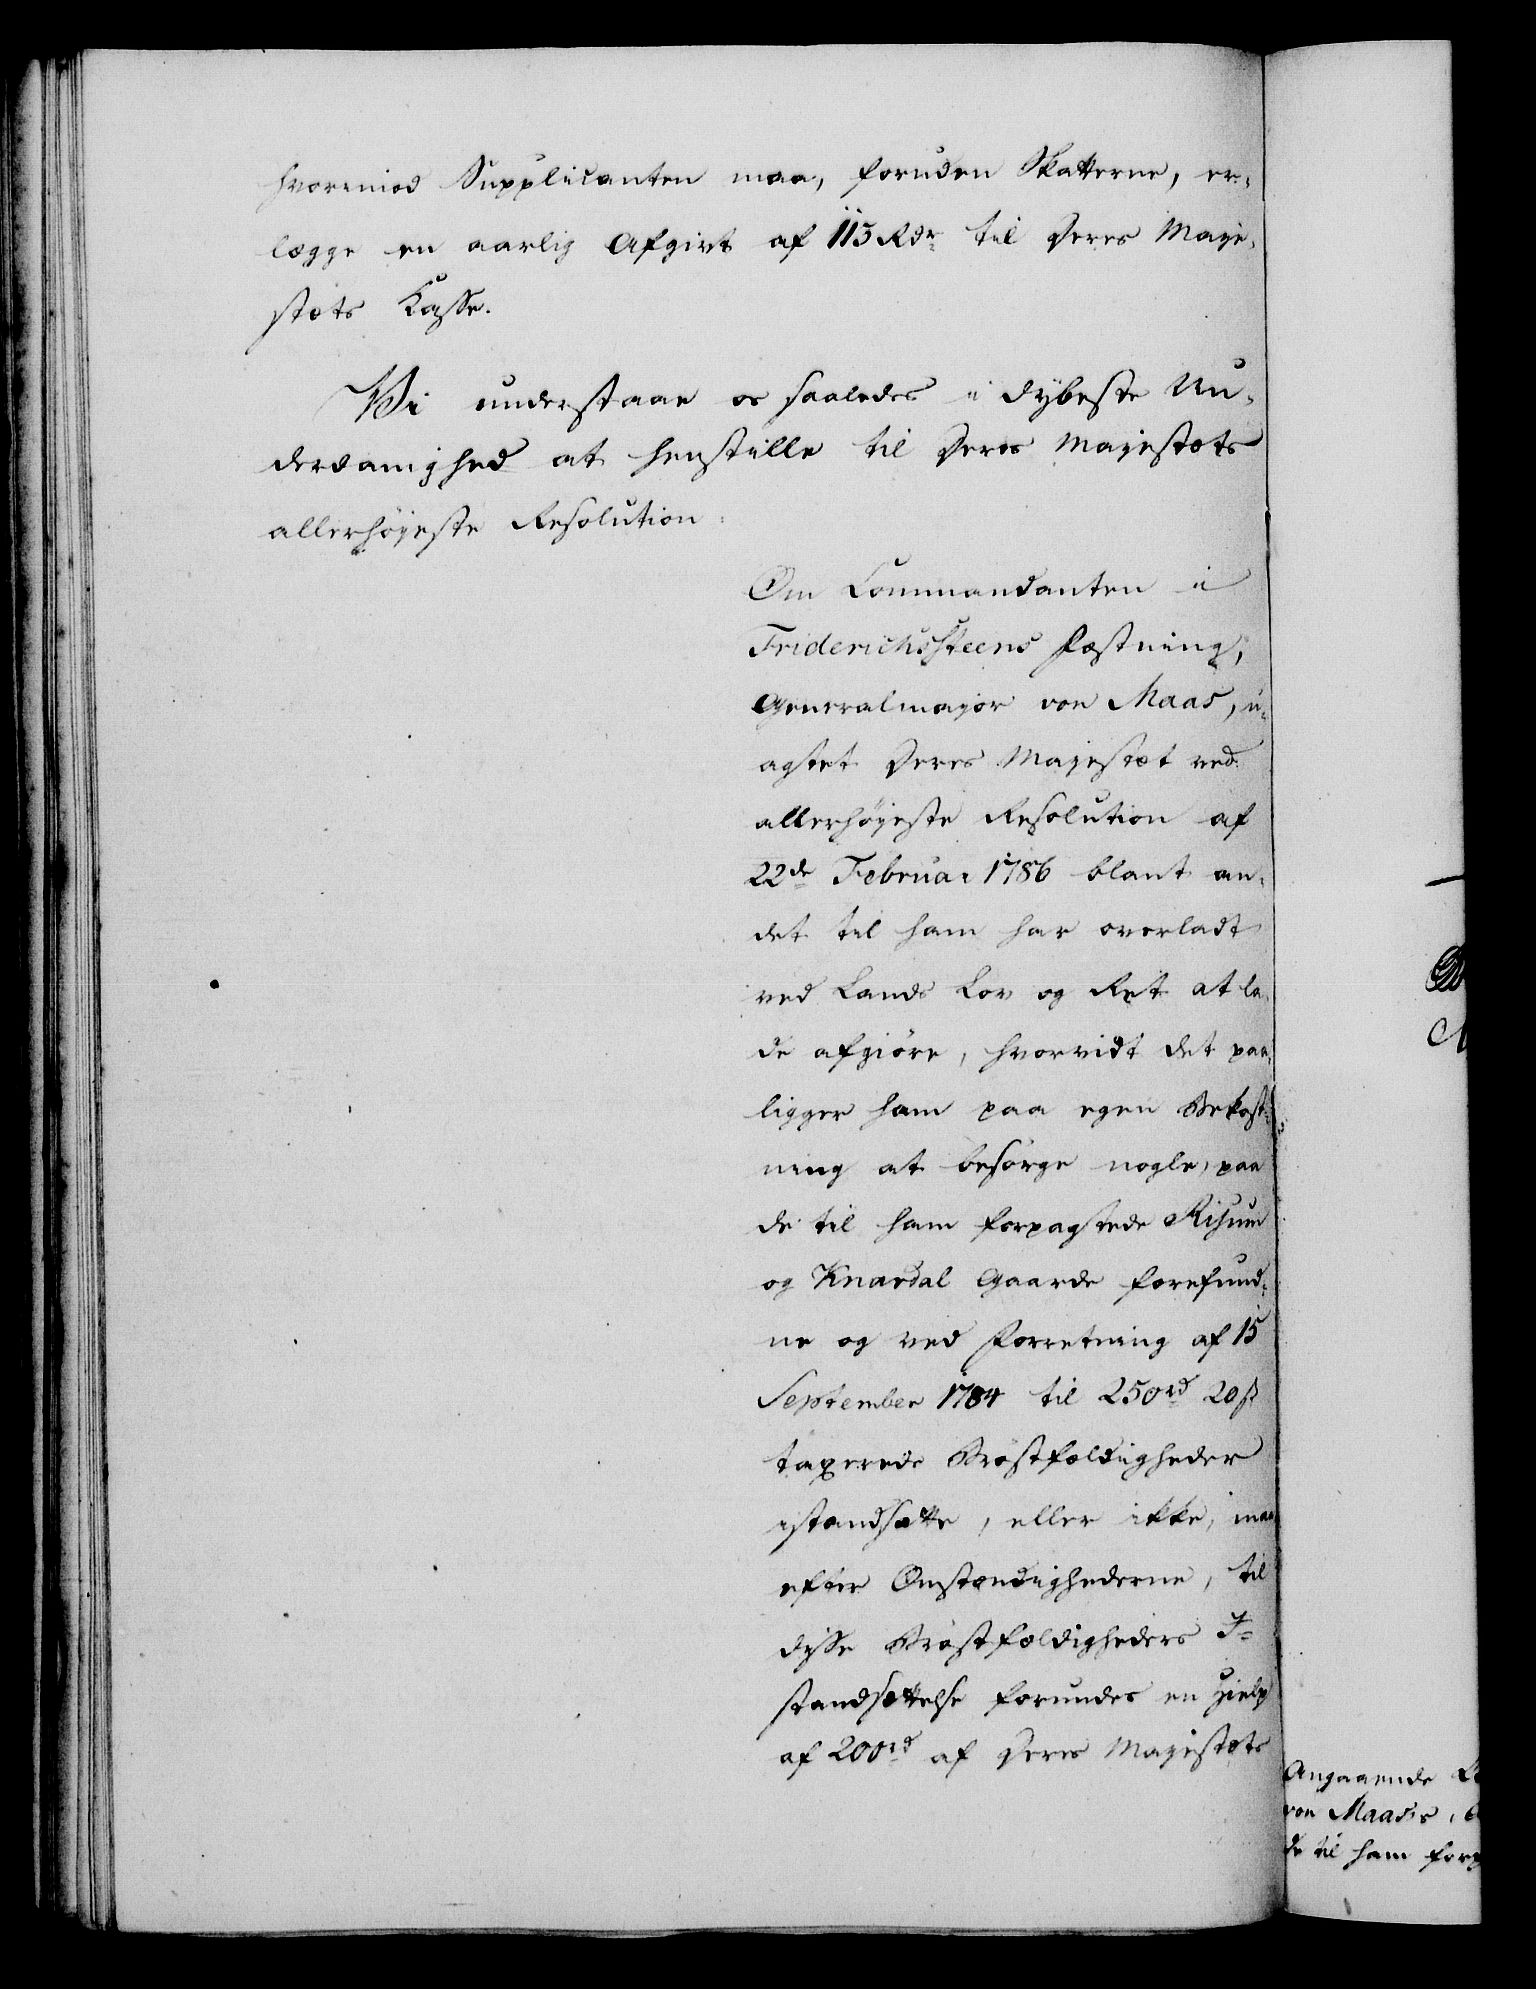 hvorimod Supplicanten maa, foruden Skatterne, er-
lægge en aarlig Afgivt af 115 Rdr til Deres Maje-
stæts Kasse.
Vi understaae os saaledes i dybeste Un-
derdanighed at henstille til Deres Majestæts
allerhøyeste Resolution:
Om Commandanten i
Friderichssteens Fæstning,
Generalmajor von Maas, u-
agtet Deres Majestæt ved
allerhøyeste Resolution af
22de Februar 1786 blant an-
det til ham har overladt
ved Lands Lov og Ret at la-
de afgiøre, hvorvidt det paa-
ligger ham paa egen Bekost-
ning at besørge nogle, paa
de til ham forpagtede Risum
og Knardal Gaarde forefund-
ne og ved Forretning af 15
September 1784 til 250rd 20 ß
taxerede Brøstfældigheder
istandsatte, eller ikke, maa
efter Omstændighederne, til
disse Brøstfældigheders I-
standsættelse forundes en Hielp
af 200rd af Deres Majestæts
Angaaende
von Maas's,
de til ham forp